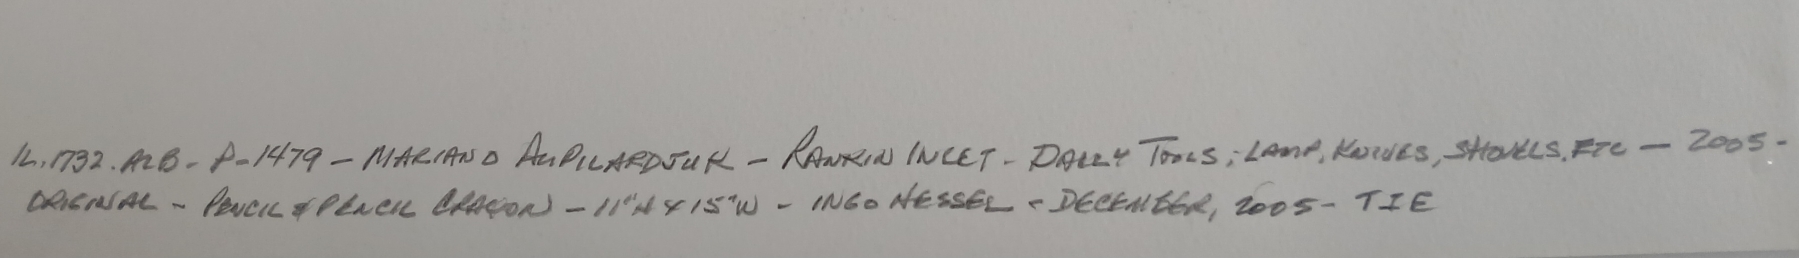 IL.1732.A2B - P-1479 - MARIANO AUPILARDJUK - RANKIN INLET - DAILY TOOLS; LAMP, KNIVES, SHOVELS, ETC - 2005 -
ORIGINAL - PENCIL & PENCIL CRAYON - 11"H X 15"W - INGO HESSEL - DECEMBER, 2005 - TIE